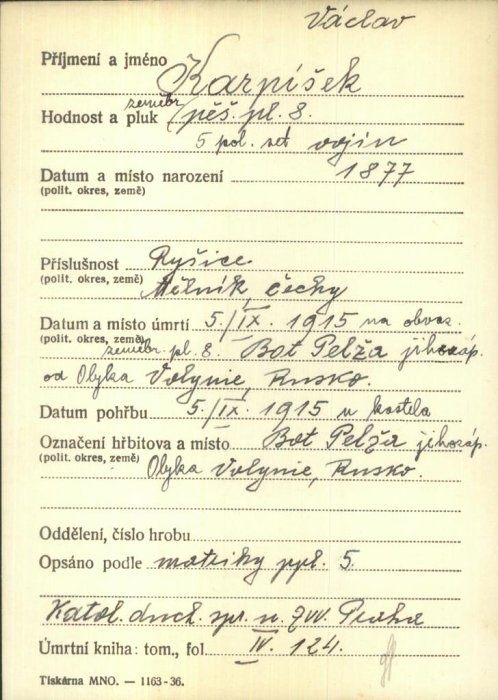 Václav
Příjmení a jméno Karpíšek
Hodnost a pluk zeměbr. pěš. pl. 8.
5 pol. set. vojín
Datum a místo narození 1877
(polit. okres, země)
Příslušnost Ryšice
(polit. okres, země) Mělník, Čechy
Datum a místo úmrtí 5./IX. 1915 na obvaz.
(polit. okres, země) zeměbr. pl. 8. Bot Pelža jihozáp.
od Olyka Volynie, Rusko.
Datum pohřbu 5./IX. 1915 u kostela
Označení hřbitova a místo Bot Pelža jihozáp.
(polit. okres, země) Olyka Volynie, Rusko.
Oddělení, číslo hrobu
Opsáno podle matriky ppl. 5.
Katol. duch. spr. u ZVV. Praha
Úmrtní kniha: tom., fol. IV. 124.
Tiskárna MNO. — 1163-36.